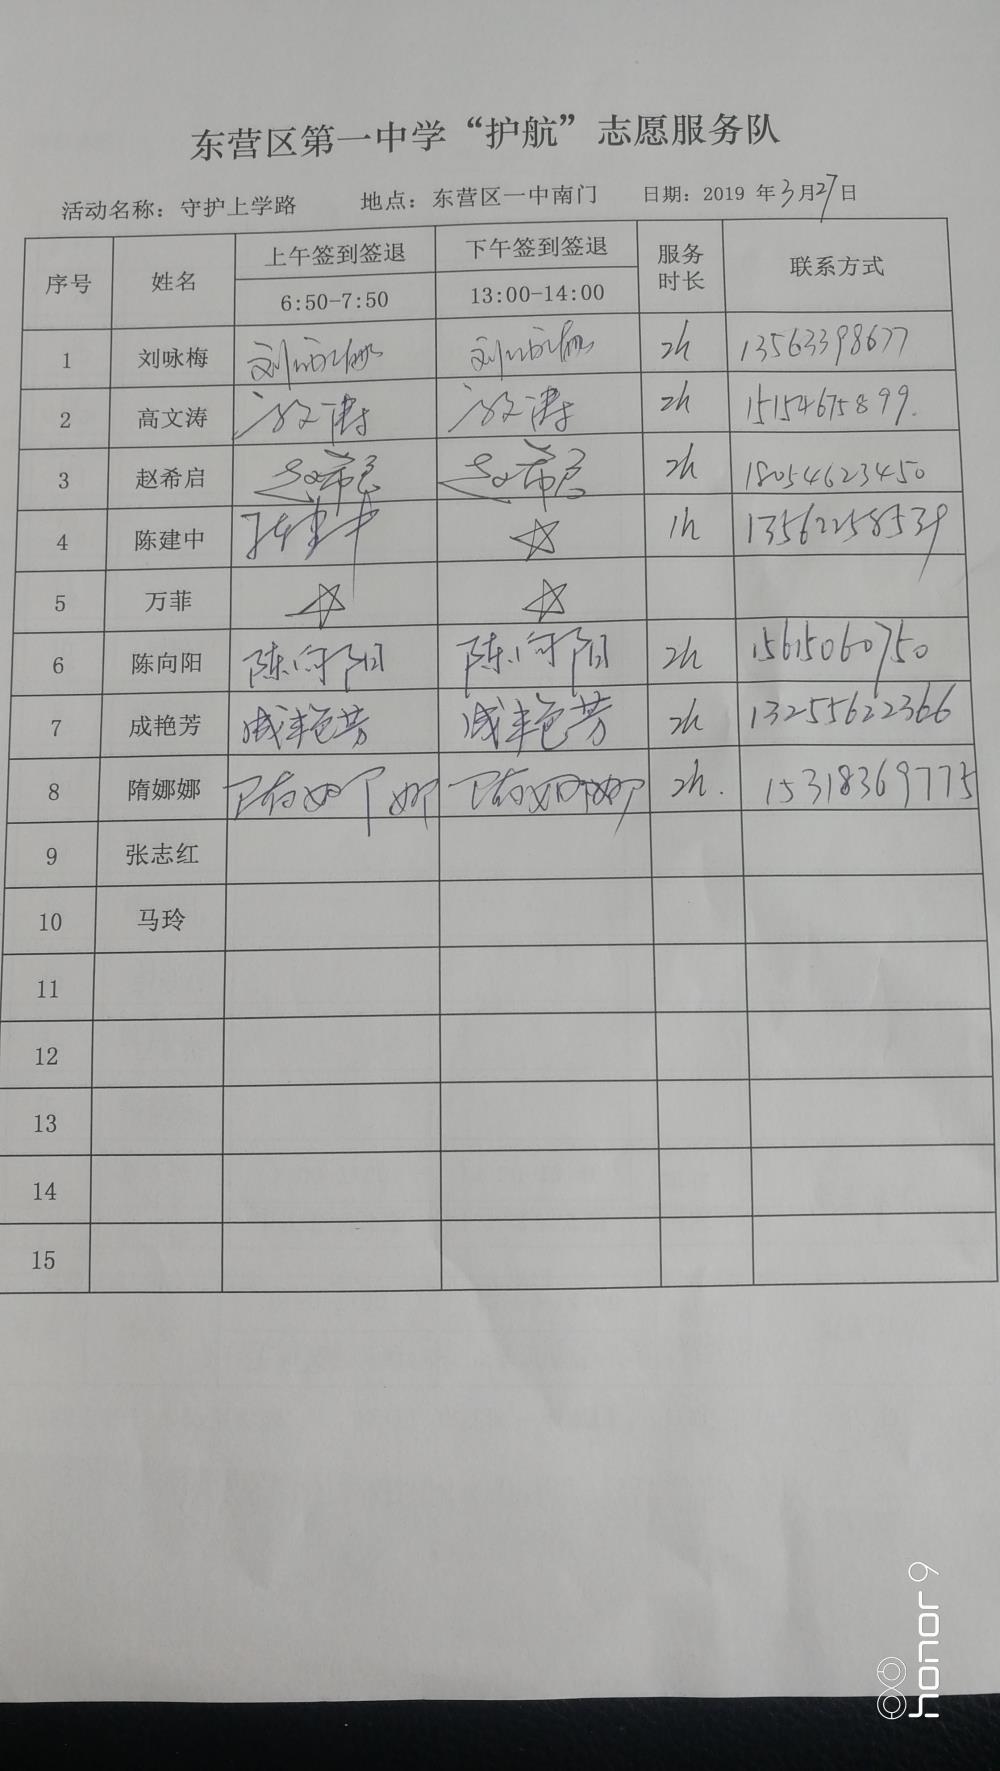 东营区第一中学“护航”志愿服务队
活动名称：守护上学路 地点：东营区一中南门 日期：2019 年3月27日
序号 姓名 上午签到签退 下午签到签退 服务时长 联系方式
6:50-7:50 13:00-14:00
1 刘咏梅 刘咏梅 刘咏梅 2h 13563398677
2 高文涛 高文涛 高文涛 2h 15154675899.
3 赵希启 赵希启 赵希启 2h 18054623450
4 陈建中 陈建中 ☆ 1h 13562258539
5 万菲 ☆ ☆
6 陈向阳 陈向阳 陈向阳 2h 15615060750
7 成艳芳 成艳芳 成艳芳 2h 13255622366
8 隋娜娜 隋娜娜 隋娜娜 2h. 15318369775
9 张志红
10 马玲
11
12
13
14
15
honor 9